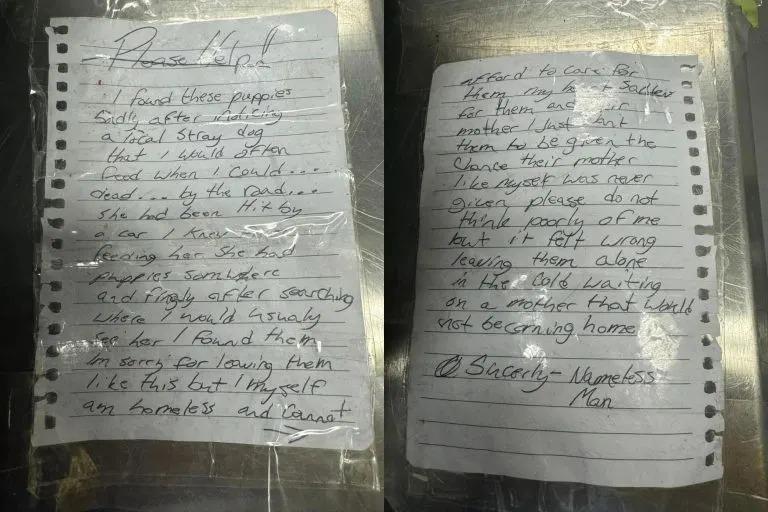 Please Help!
I found these puppies
Sadly after noticing
a local stray dog
that I would often
feed when I could...
dead... by the road...
she had been Hit by
a car I knew
feeding her she had
puppies somwhere
and finally after searching
where I would usualy
see her I found them
im sorry for leaving them
like this but I myself
am homeless and cannot
afford to care for
them my
for them and
mother I Just
them to be given the
chance their mother
like myself was never
given please do not
think poorly of me
but it felt wrong
leaving them alone
in the cold waiting
on a mother that would
not be coming home
Sincerly - Nameless
Man